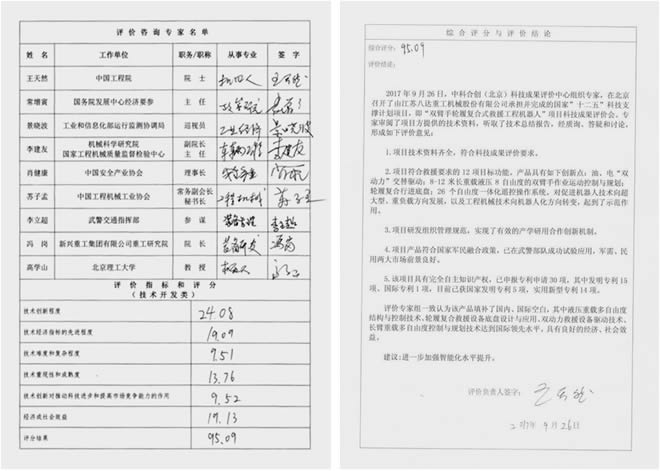 评价咨询专家名单
姓名 工作单位 职务/职称 从事专业 签字
王天然 中国工程院 院士 机器人 王天然
常增寅 国务院发展中心经济要参 主任 政策研究
景晓波 工业和信息化部运行监测协调局 巡视员 工业经济 景晓波
李建友 机械科学研究院
国家工程机械质量监督检验中心 副院长
主任 车辆工程 李建友
肖健康 中国安全产业协会 理事长
苏子孟 中国工程机械工业协会 常务副会长
秘书长 工程机械 苏子孟
李立超 武警交通指挥部 参谋 装备管理 李立超
冯岗 新兴重工集团有限公司重工研究院 院长 装备研发 冯岗
高学山 北京理工大学 教授 机器人
评价指标和评分
(技术开发类)
技术创新程度 24.08
技术经济指标的先进程度 19.09
技术难度和复杂程度 9.51
技术重现性和成熟度 13.76
技术创新对推动科技进步和提高市场竞争能力的作用 9.52
经济或社会效益 19.13
评价结果 95.09
综合评分与评价结论
综合评分: 95.09
评价结论:
2017年9月26日,中科合创(北京)科技成果评价中心组织专家,在北京
召开了由江苏八达重工机械股份有限公司承担并完成的国家“十二五”科技支
撑计划项目,即“双臂手轮履复合式救援工程机器人”项目科技成果评价会。专
家审阅了项目方提供的技术资料,听取了技术总结报告,经质询、答疑和讨论,
形成如下评价意见:
1.项目技术资料齐全,符合科技成果评价要求。
2.项目符合救援要求的12项目标功能。产品具有如下创新点:油、电“双
动力”交替驱动;8-12米长重载液压8自由度的双臂手作业运动控制与规划;
轮履复合行进底盘;26个自由度一体化遥控操作系统。对促进机器人技术向超大
型、重负载方向发展,以及工程机械技术向机器人化方向转变,起到了示范作
用。
3.项目研发组织管理规范,实现了有效的产学研用合作创新机制。
4.项目产品符合国家军民融合政策,已在武警部队成功试验应用,军需、民
用两大市场前景良好。
5.该项目具有完全自主知识产权,已申报专利申请30项,其中发明专利15
项、国际专利1项,目前已获国家发明专利5项,实用新型专利14项。
评价专家组一致认为该产品填补了国内、国际空白,其中液压重载多自由度
结构与控制技术、轮履复合救援设备底盘设计与应用、双动力救援设备驱动技术、
长臂重载多自由度控制与规划技术达到国际领先水平,具有良好的经济、社会效
益。
建议:进一步加强智能化水平提升。
评价负责人签字: 王天然
2017年9月26日